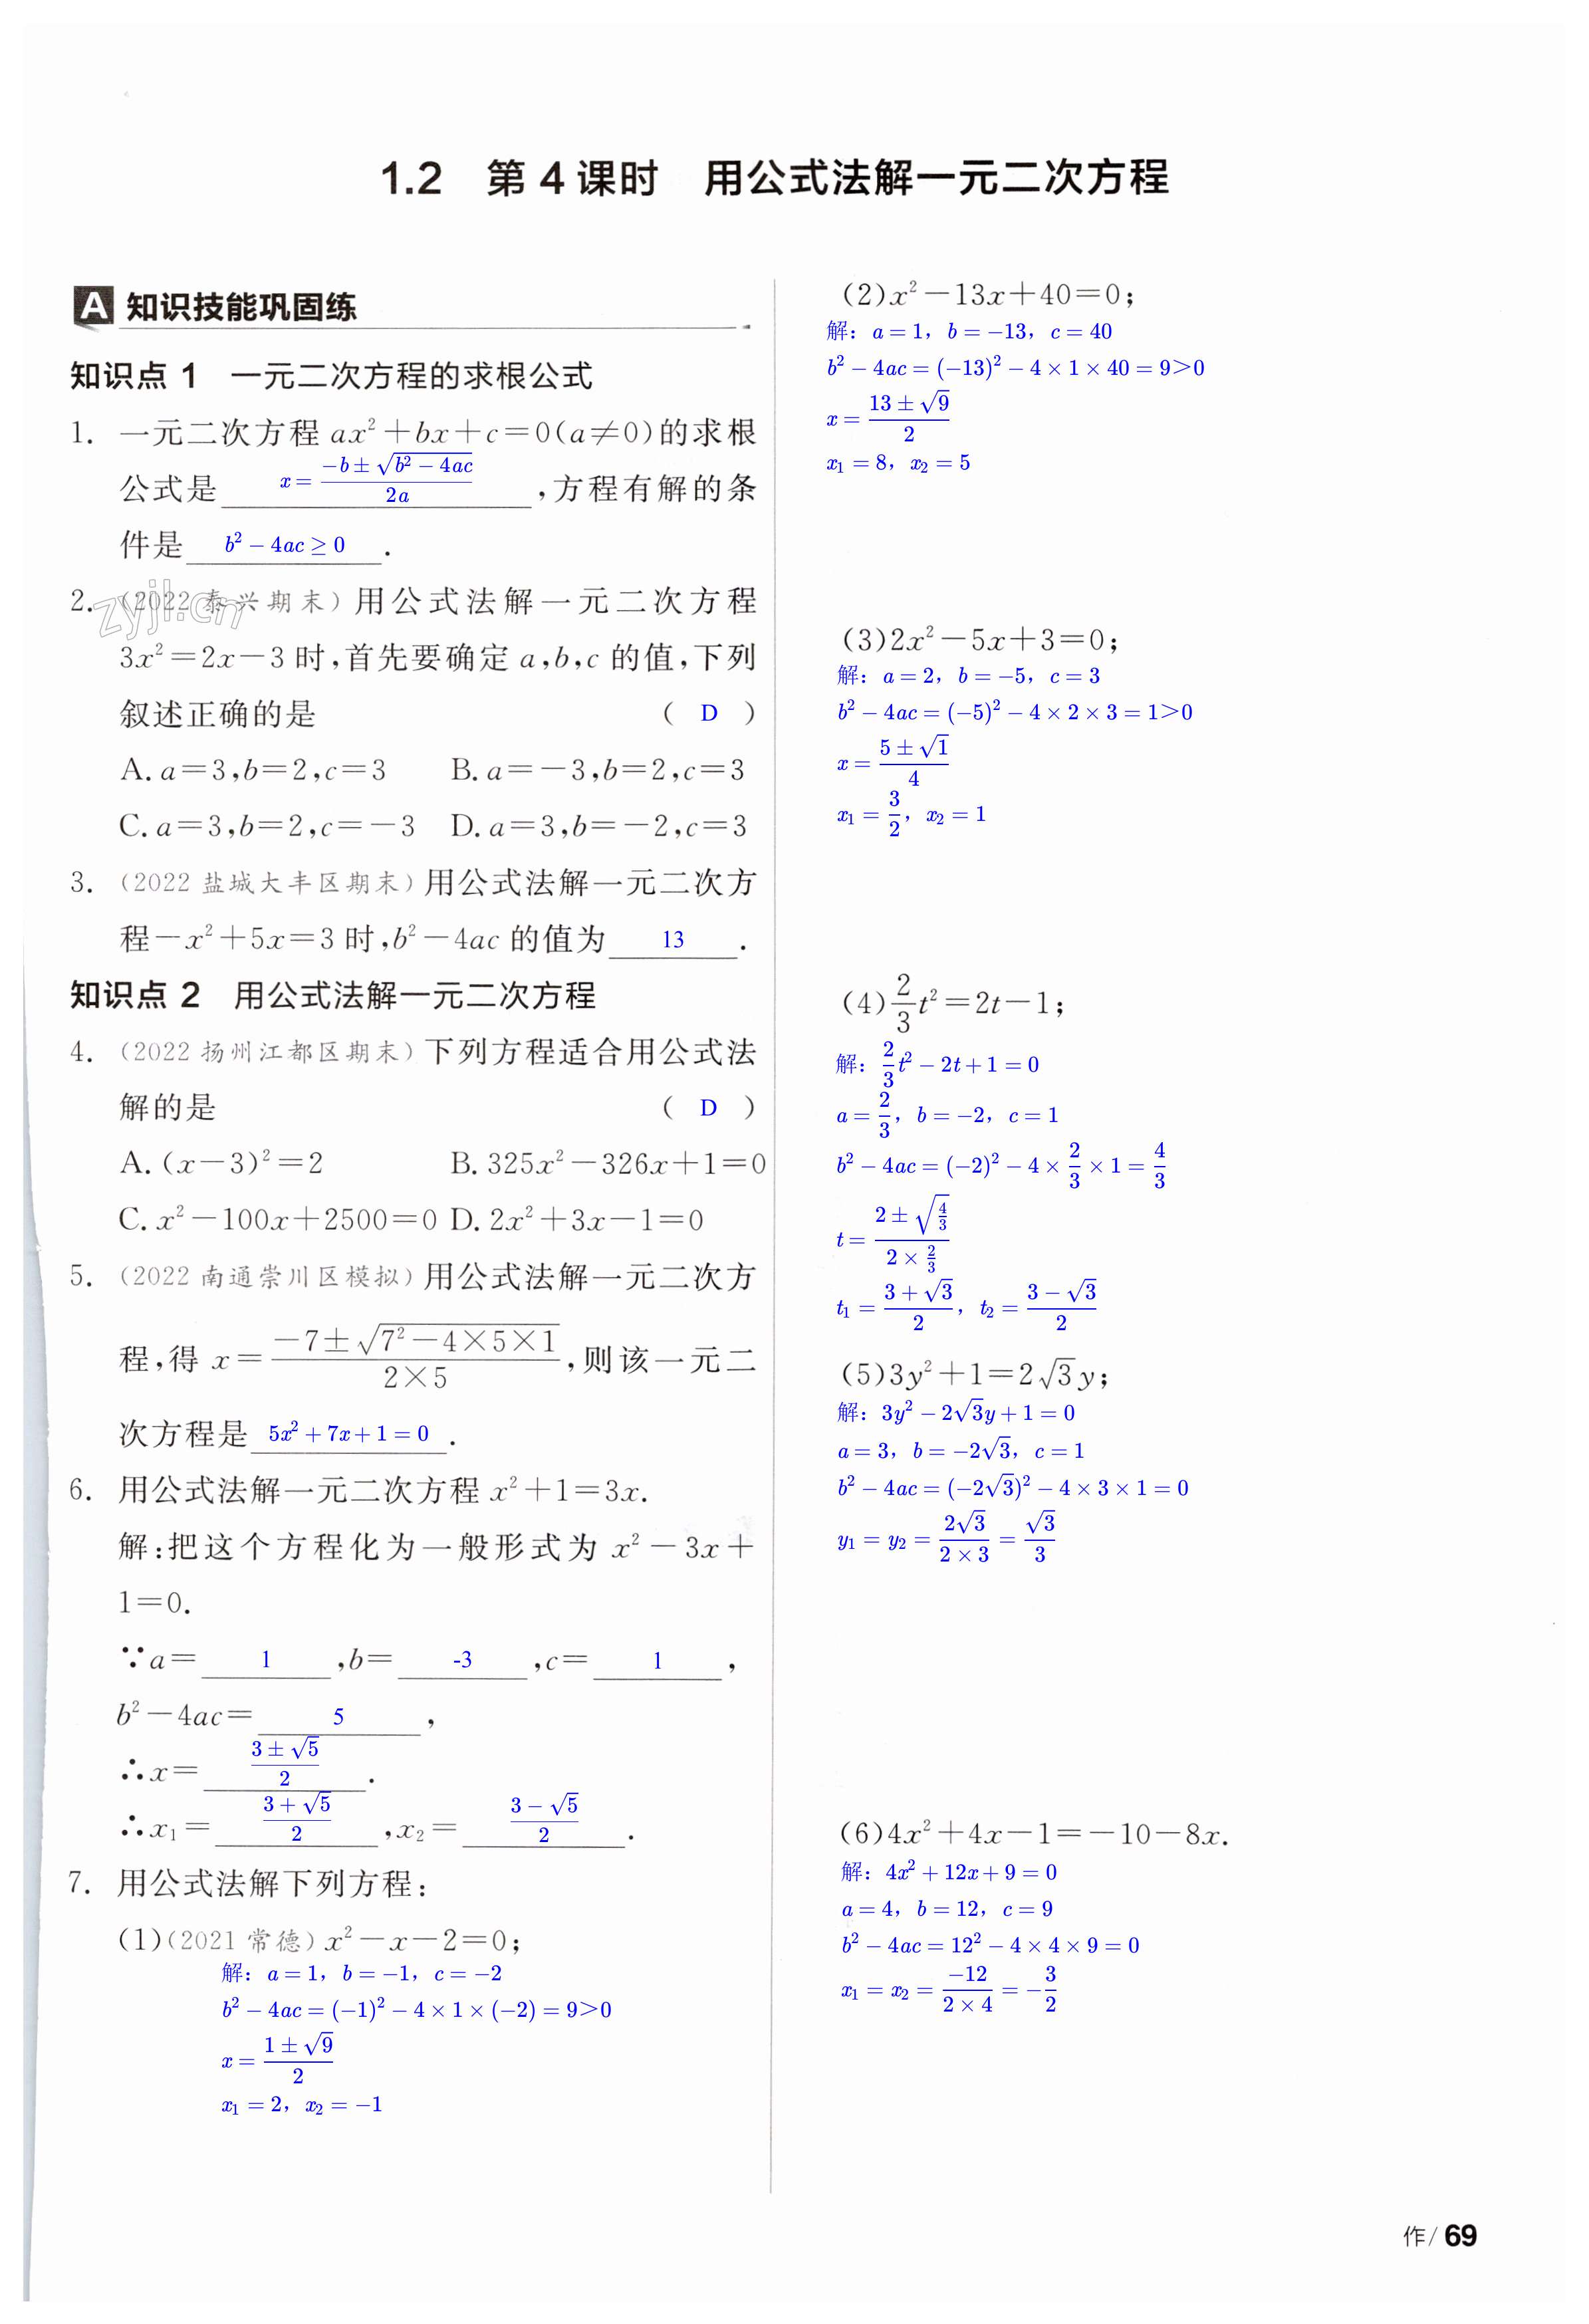 1.2 第 4 课时 用公式法解一元二次方程
A 知识技能巩固练
知识点 1 一元二次方程的求根公式
1. 一元二次方程 ax²+bx+c=0(a≠0)的求根
公式是 x=(-b±√(b²-4ac))/(2a) ,方程有解的条
件是 b²-4ac≥0 .
2. (2022 泰兴期末)用公式法解一元二次方程
3x²=2x-3 时,首先要确定 a,b,c 的值,下列
叙述正确的是 ( D )
A. a=3,b=2,c=3 B. a=-3,b=2,c=3
C. a=3,b=2,c=-3 D. a=3,b=-2,c=3
3. (2022 盐城大丰区期末)用公式法解一元二次方
程-x²+5x=3 时,b²-4ac 的值为 13 .
知识点 2 用公式法解一元二次方程
4. (2022 扬州江都区期末)下列方程适合用公式法
解的是 ( D )
A. (x-3)²=2 B. 325x²-326x+1=0
C. x²-100x+2500=0 D. 2x²+3x-1=0
5. (2022 南通崇川区模拟)用公式法解一元二次方
程,得 x=(-7±√(7²-4×5×1))/(2×5),则该一元二
次方程是 5x²+7x+1=0 .
6. 用公式法解一元二次方程 x²+1=3x.
解:把这个方程化为一般形式为 x²-3x+
1=0.
∵a= 1 ,b= -3 ,c= 1 ,
b²-4ac= 5 ,
∴x= (3±√5)/2 .
∴x₁= (3+√5)/2 ,x₂= (3-√5)/2 .
7. 用公式法解下列方程:
(1)(2021 常德)x²-x-2=0;
解：a=1，b=-1，c=-2
b²-4ac=(-1)²-4×1×(-2)=9>0
x=(1±√9)/2
x₁=2，x₂=-1
(2)x²-13x+40=0;
解：a=1，b=-13，c=40
b²-4ac=(-13)²-4×1×40=9>0
x=(13±√9)/2
x₁=8，x₂=5
(3)2x²-5x+3=0;
解：a=2，b=-5，c=3
b²-4ac=(-5)²-4×2×3=1>0
x=(5±√1)/4
x₁=3/2，x₂=1
(4)2/3t²=2t-1;
解：2/3t²-2t+1=0
a=2/3，b=-2，c=1
b²-4ac=(-2)²-4×2/3×1=4/3
t=(2±√(4/3))/(2×2/3)
t₁=(3+√3)/2，t₂=(3-√3)/2
(5)3y²+1=2√3y;
解：3y²-2√3y+1=0
a=3，b=-2√3，c=1
b²-4ac=(-2√3)²-4×3×1=0
y₁=y₂=(2√3)/(2×3)=√3/3
(6)4x²+4x-1=-10-8x.
解：4x²+12x+9=0
a=4，b=12，c=9
b²-4ac=12²-4×4×9=0
x₁=x₂=-12/(2×4)=-3/2
zyjl.cn
作/ 69